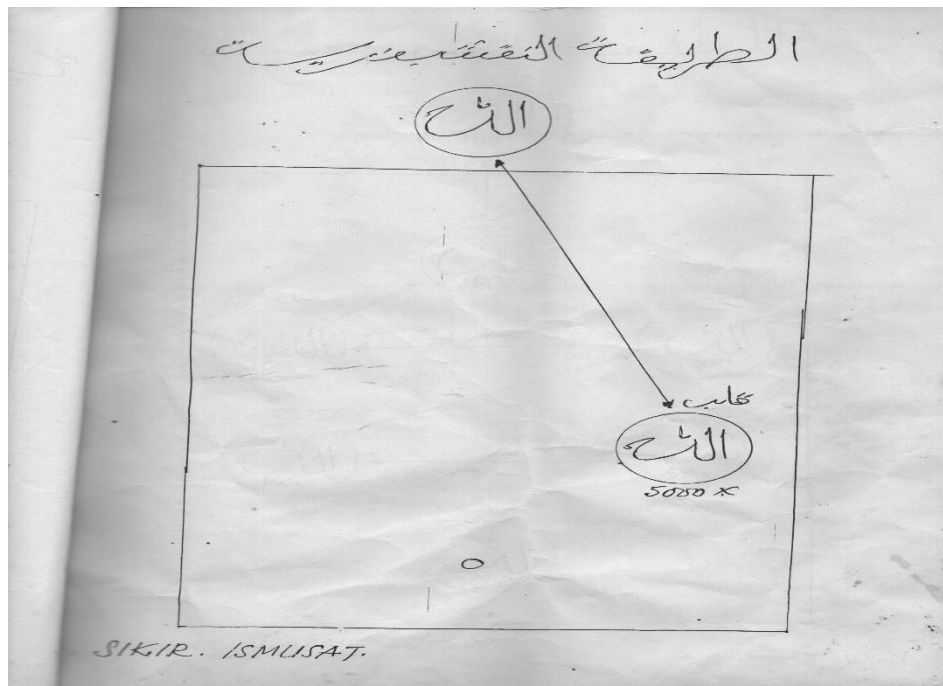 الطريقة النقشبندية
الله
قلب
الله
5000 x
SIKIR. ISMUSAT.